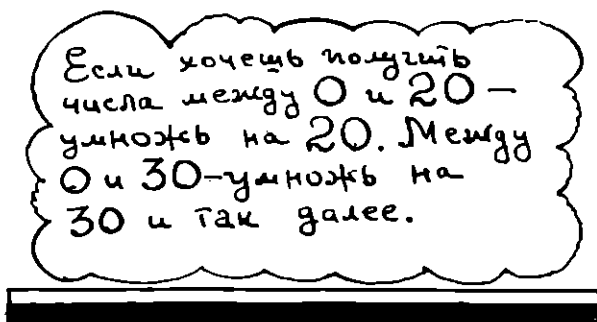 Если хочешь получить
числа между 0 и 20 –
умножь на 20. Между
0 и 30-умножь на
30 и так далее.